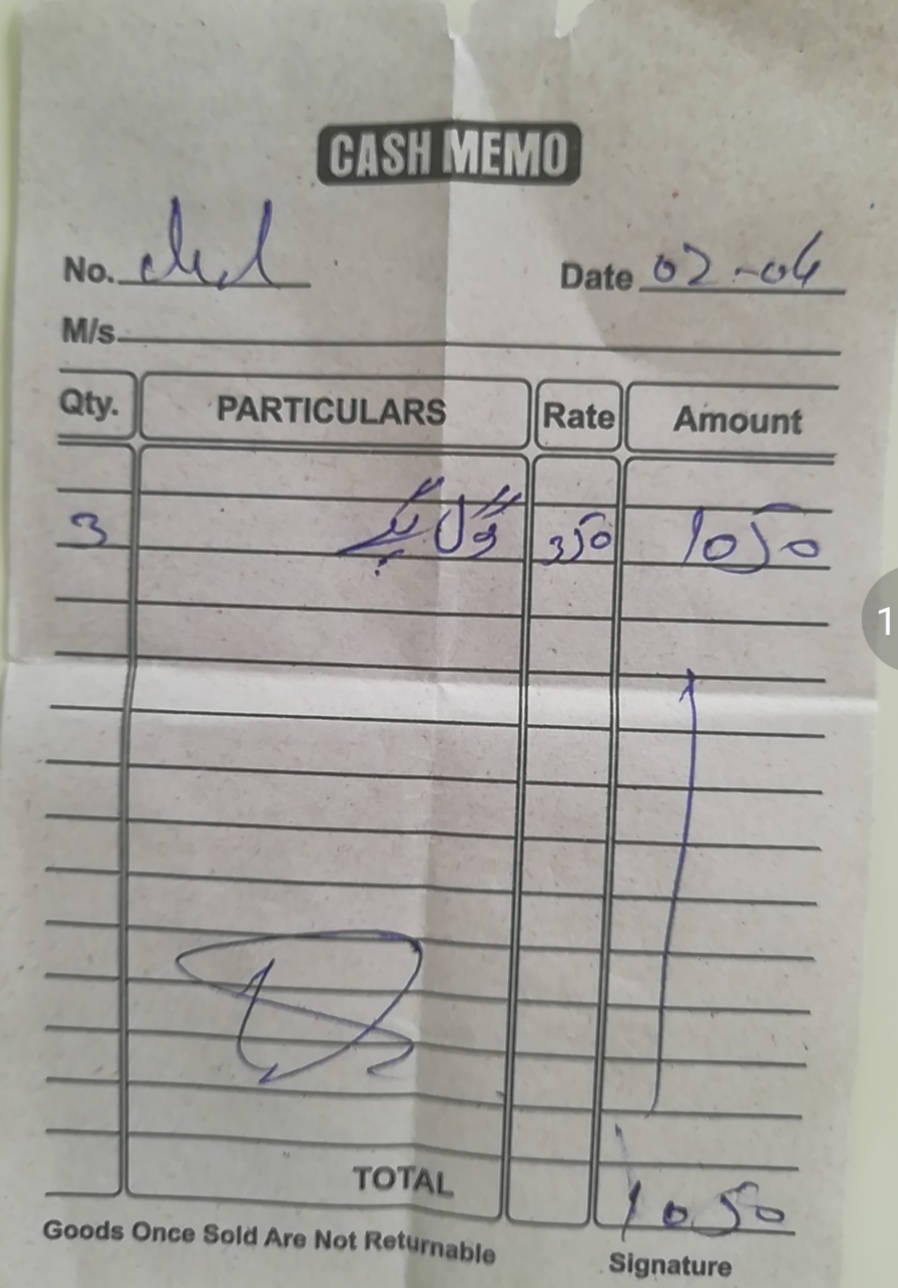 CASH MEMO
No. Date 02-04
M/s.
Qty. PARTICULARS Rate Amount
3 350 1050
TOTAL 1050
Goods Once Sold Are Not Returnable
Signature
1